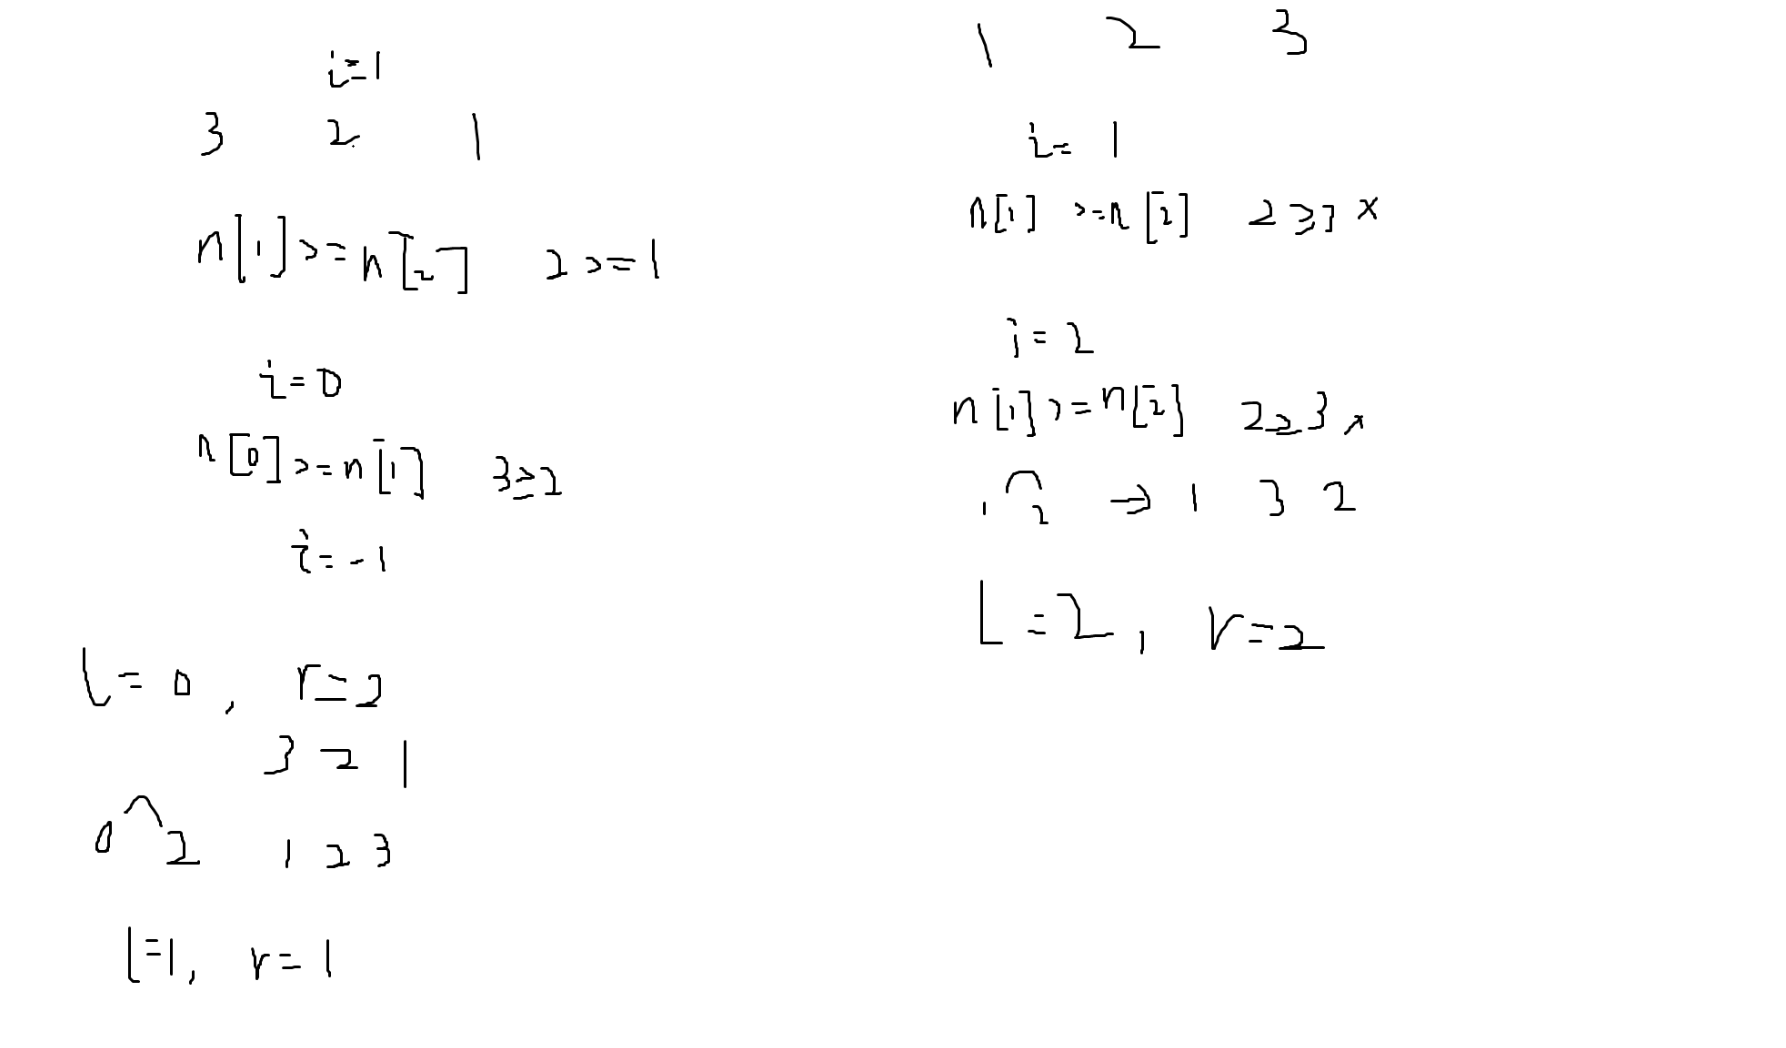 i=1
3 2 1
n[1]>=n[2] 2>=1
i=0
n[0]>=n[1] 3≥2
i=-1
l=0, r=2
3 2 1
0 2 1 2 3
l=1, r=1
1 2 3
i=1
n[1]>=n[2] 2≥3 x
i=2
n[1]>=n[2] 2≥3 x
1 2 → 1 3 2
L=2, r=2